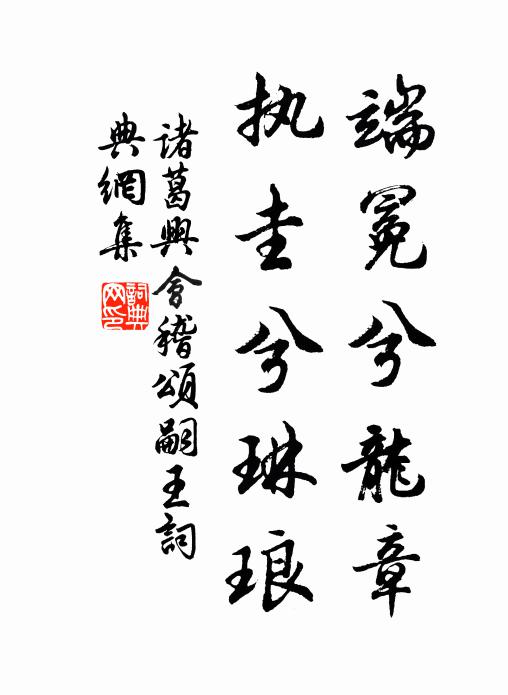 端冕兮龍章
执圭兮琳琅
諸葛興會稽頌嗣王詞
典網集
詞典網印